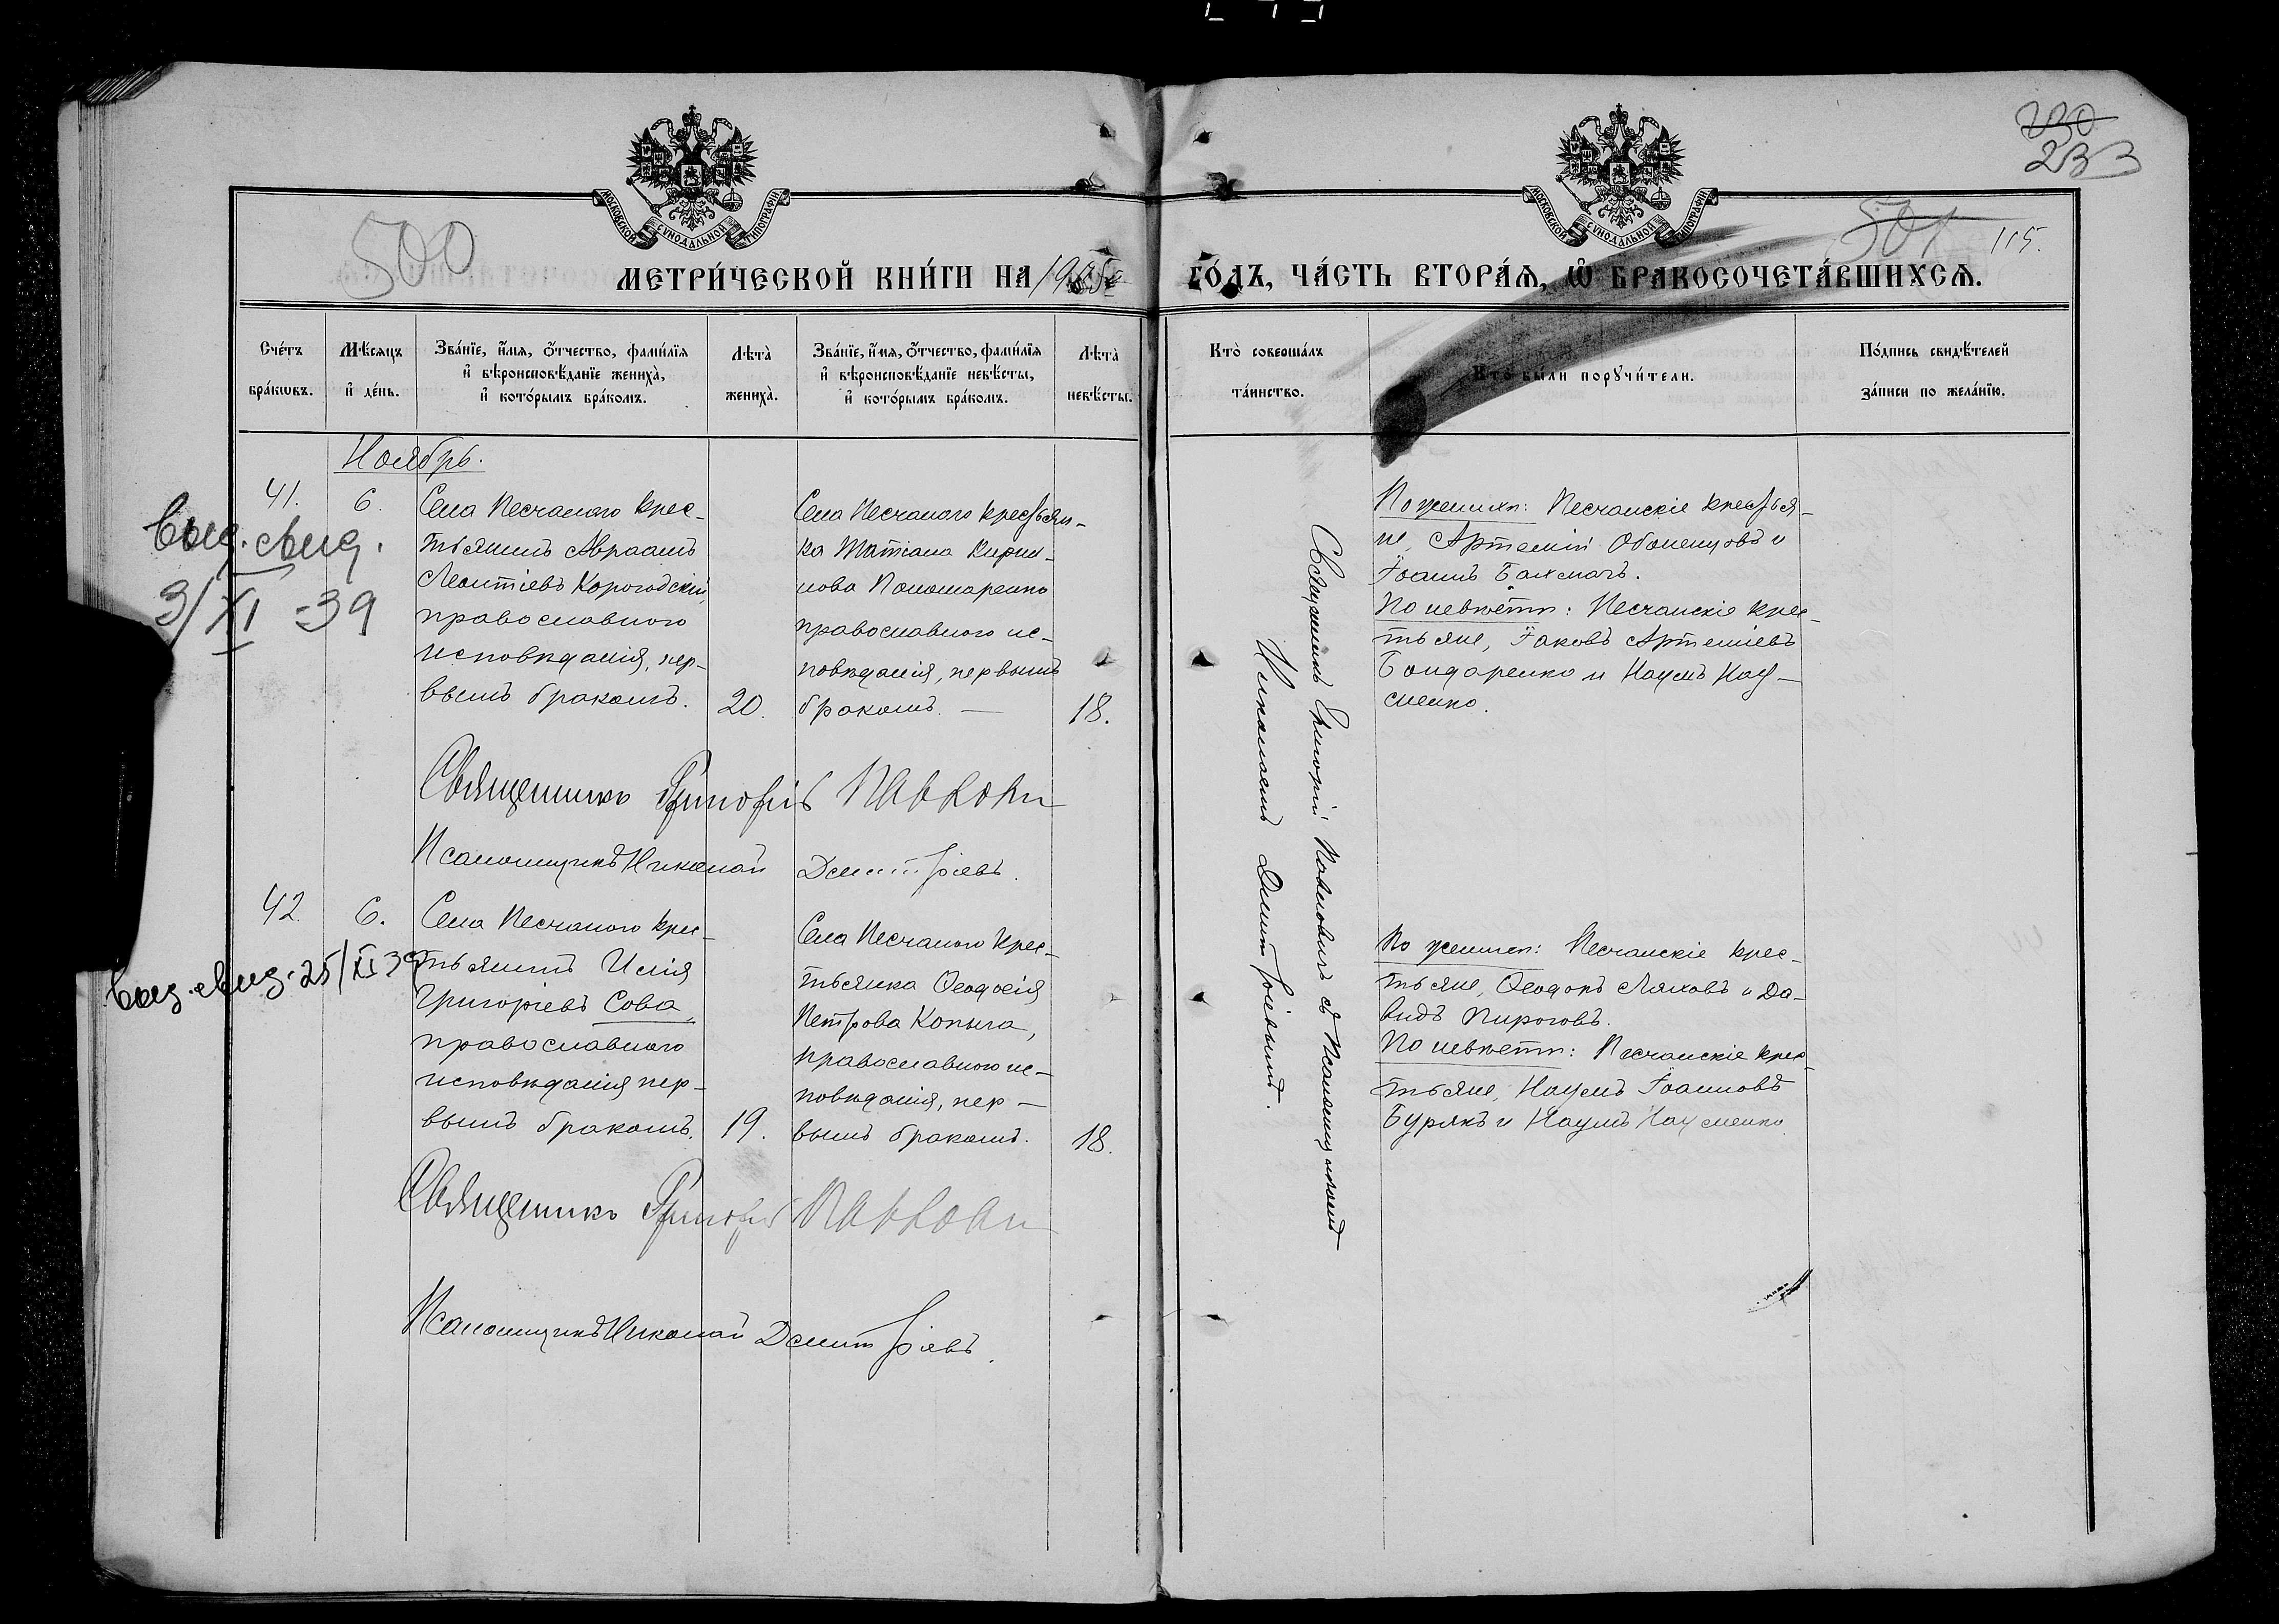 230
233
МОСКОВСКОЙ СѴНОДАЛЬНОЙ ТИПОГРАФІИ
МОСКОВСКОЙ СѴНОДАЛЬНОЙ ТИПОГРАФІИ
500
501
115.
МЕТРИ́ЧЕСКОЙ КНИ́ГИ НА 1905
ГО́ДЪ, ЧА́СТЬ ВТОРА́Ѧ, Ѽ БРАКОСОЧЕТА́ВШИХСѦ.
Сче́тъ бра́кѡвъ.
Мѣ́сяцъ и҆ де́нь.
Зва́нїе, и҆́мѧ, ѻ҆́тчество, фамѝлїѧ и҆ вѣроисповѣ́данїе женихà, и҆ кото́рымъ бра́комъ.
Лѣ́та женихà.
Зва́нїе, и҆́мѧ, ѻ҆́тчество, фамѝлїѧ и҆ вѣроисповѣ́данїе невѣ́сты, и҆ кото́рымъ бра́комъ.
Лѣ́та невѣ́сты.
Кто̀ соверша́лъ та́инство.
Кто̀ бы́ли порꙋчи́тели.
По́дпись свидѣ́телей за́писи по жела́нїю.
Ноябрь.
41.
6.
Выд. свид.
3/XI -39
Села Песчаного крес-
тьянинъ Авраамъ
Леонтіевъ Корогодскій,
православного
исповѣданія, пер-
вымъ бракомъ.
20.
Села Песчаного крестьян-
ка Татіана Кирил-
лова Пономаренко
православного ис-
повѣданія, первымъ
бракомъ. —
18.
Священникъ Григорій Павловичъ съ Псаломщикомъ
Николаемъ Димитріевымъ.
По женихѣ: Песчанскіе крестья-
не, Артемій Обоненцовъ и
Іоаннъ Бахмачъ.
По невѣстѣ: Песчанскіе крес-
тьяне, Іаковъ Артеміевъ
Бондаренко и Наумъ Нау-
менко.
Священникъ Григорій Павловъ
Псаломщикъ Николай Дмитріевъ.
42
6.
Выд. свид. 25/XI 39
Села Песчаного крес-
тьянинъ Илія
Григоріевъ Сова,
православного
исповѣданія пер-
вымъ бракомъ.
19.
Села Песчаного крес-
тьянка Ѳеодосія
Петрова Копыча,
православного ис-
повѣданія, пер-
вымъ бракомъ.
18.
По женихѣ: Песчанскіе крес-
тьяне, Ѳеодоръ Ляховъ и Да-
видъ Пироговъ.
По невѣстѣ: Песчанскіе крес-
тьяне, Наумъ Іоанновъ
Бурякъ и Наумъ Науменко
Священникъ Григорій Павловъ
Псаломщикъ Николай Дмитріевъ.